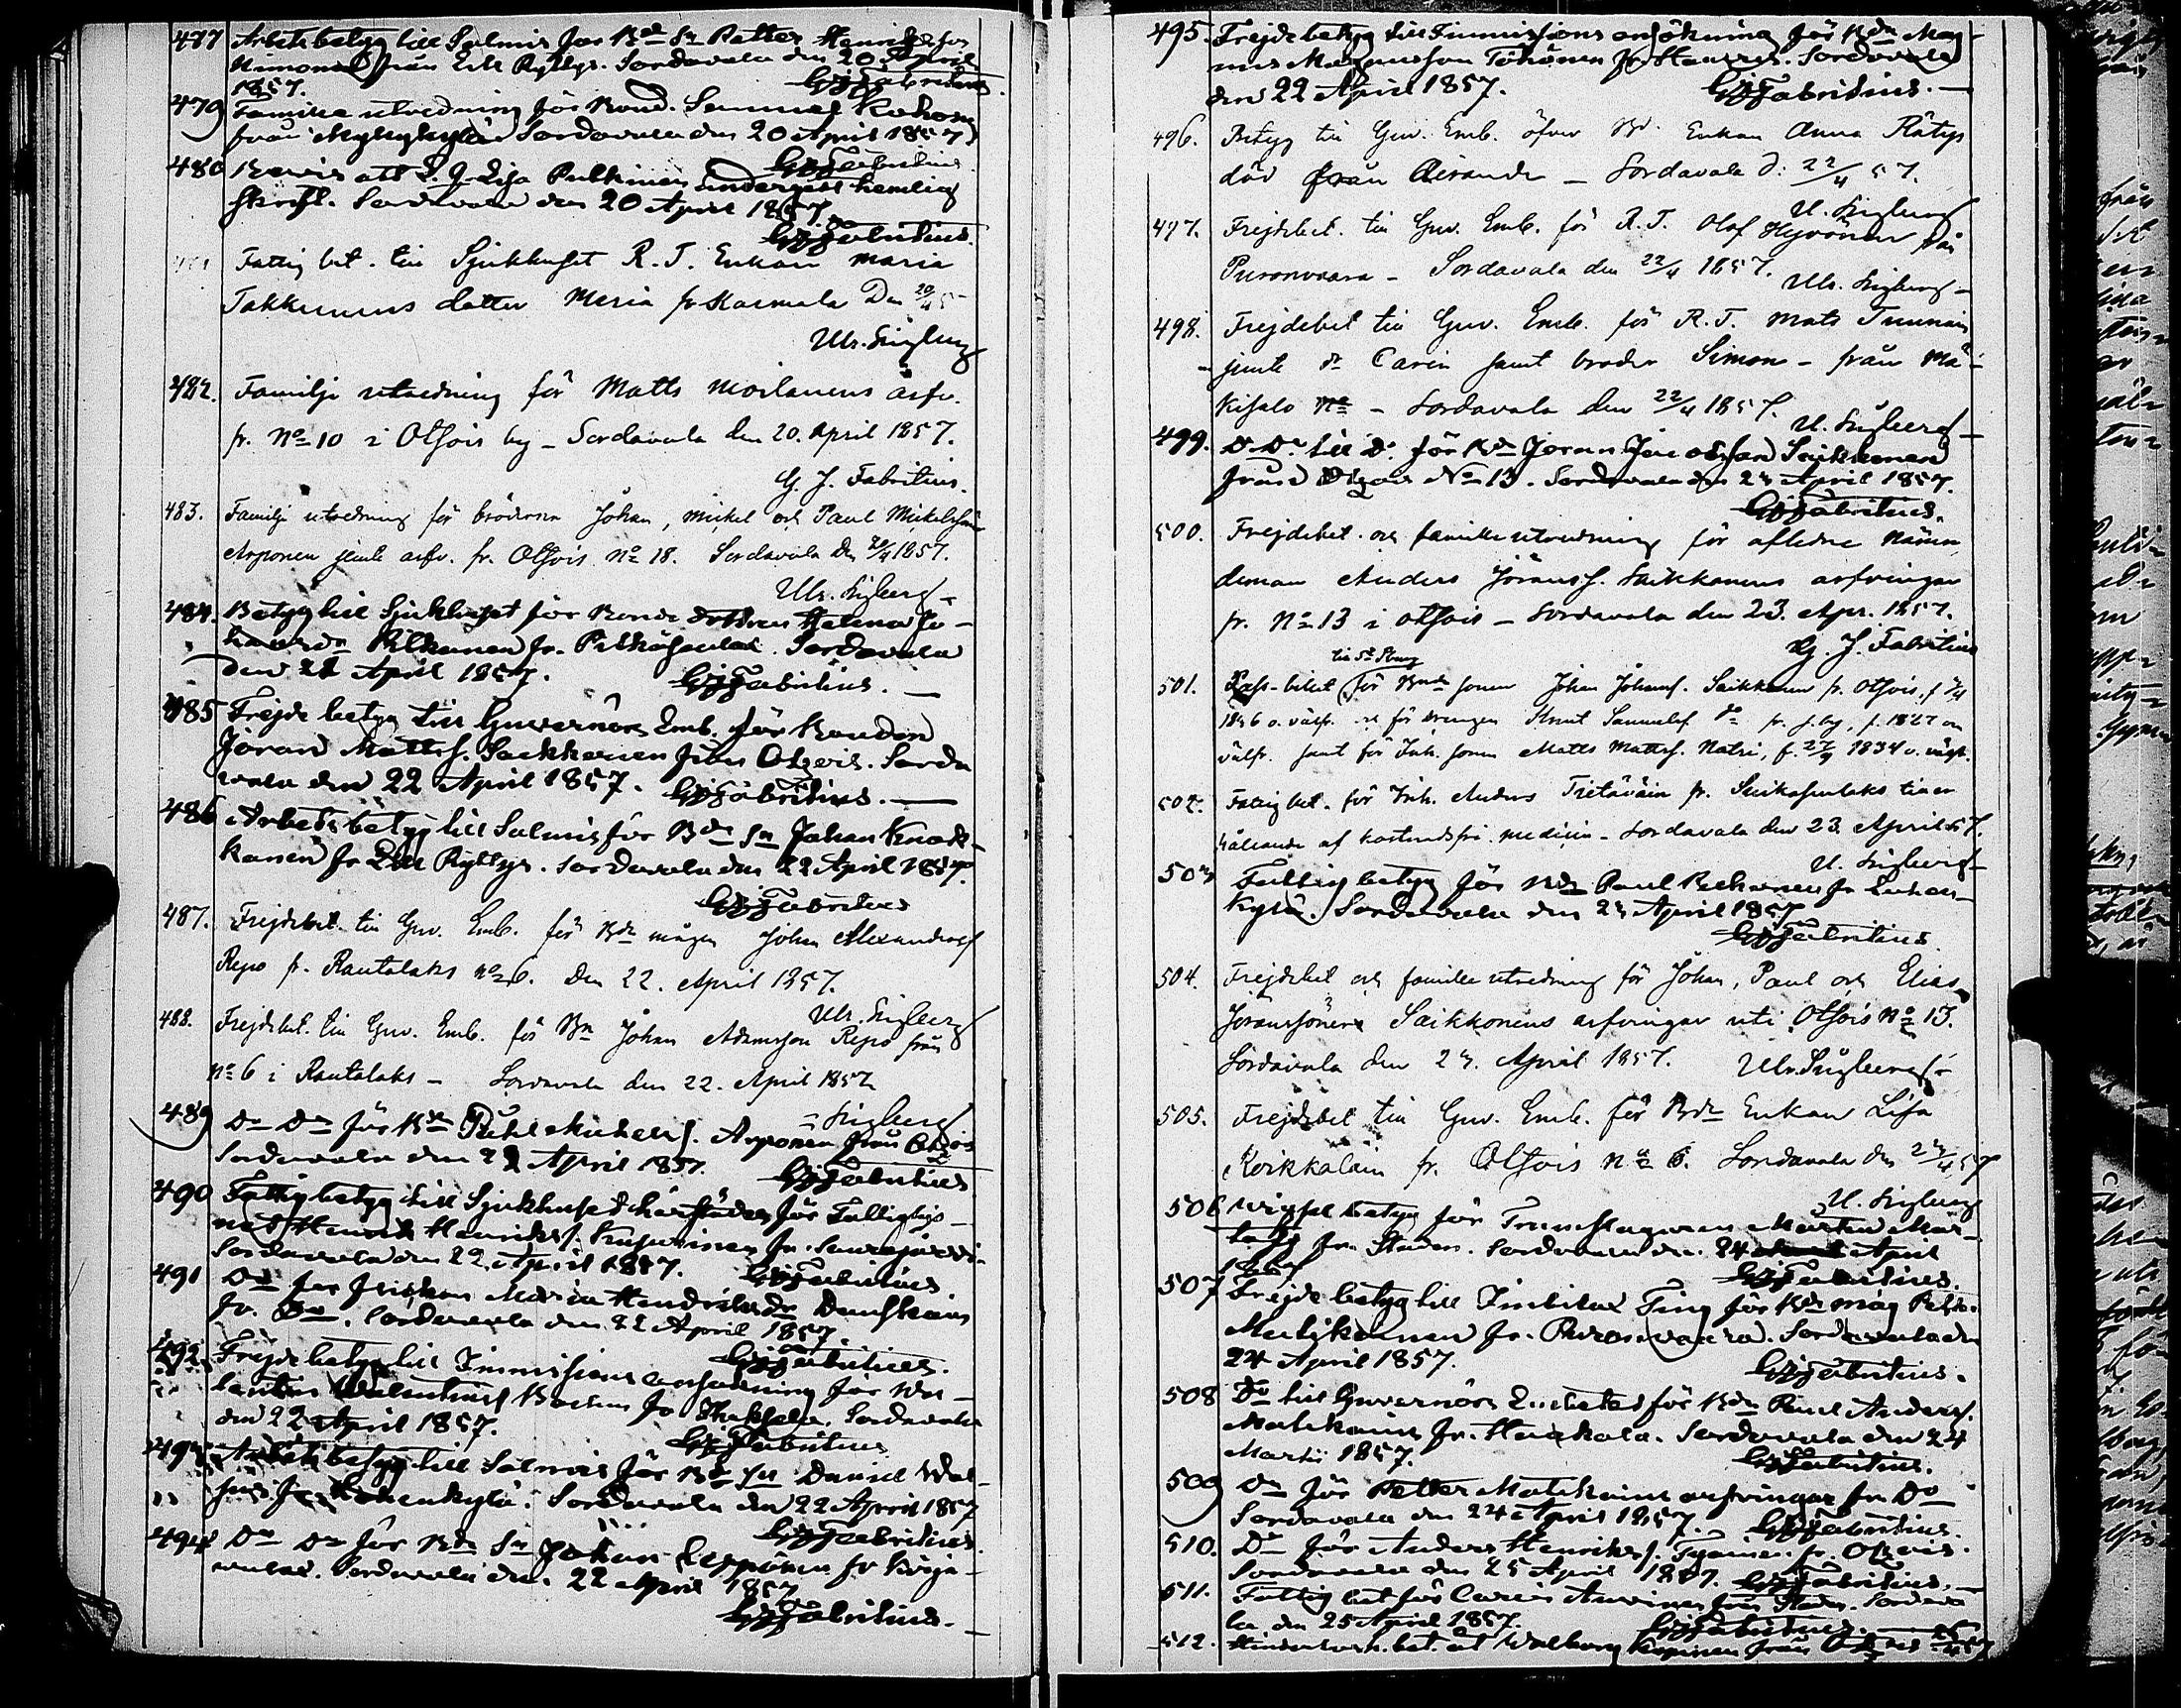 477 Arbetsbetyg till Salmis för Bde Sn Petter Henrikss
Simonen från Lill Ryttys. Sordavala den 20 April
1857. GJFabritius.
479 Familie utredning för Bond. Samuel Kokonen
från Myllykylä Sordavala den 20 April 1857
GJFabritius
480 Bevis att Lisa Pulkinen undergått hemlig
skrift. Sordavala den 20 April 1857.
GJFabritius.
481 Fattig bet. till Sjukhuset R. T. Enkan Maria
Takkunens dotter Maria fr. Kacmala Den 20/4 5
Ulr. Sigberg
482. Familje utredning för Matts Moilanens arfv.
fr. No 10 i Otsois by - Sordavala den 20. April 1857.
G. J. Fabritius.
483. Familje utredning för bröderna Johan, Mickel och Paul Mickelssön
Arponen jemte arfv. fr. Otsois No 18. Sordavala den 20/4 1857.
Ulr. Sigberg
484. Betyg till Sjukhuset för Bonde dottren Helena Jo-
hansdr Pitkänen fr. Pitkäsenlax. Sordavala
den 21 April 1857. GJFabritius.
485 Frejde betyg till Guvernörs Emb. för Bonden
Jöran Mattss. Saikkonen från Otsois. Sorda
vala den 22 April 1857. GJFabritius.
486 Arbetsbetyg till Salmis för Bde Sn Johan Knok-
kanen fr Lill Ryttys. Sordavala den 22 April 1857.
GJFabritius
487. Frejdebet. till Guv. Emb. för Bde mågen Johan Alexandress
Repo fr. Rautalaks No 6. Den 22. April 1857.
Ulr. Sigberg
488. Frejdebet. till Guv. Emb. för Bn Johan Adamsson Repo från
No 6 i Rautalaks - Sordavala den 22. April 1857.
Sigberg
489 Do Do för Bde Påhl Michelss. Arponen från Otsois
Sordavala den 22 April 1857. GJFabritius
490 Fattigbetyg till Sjukhuset härstädes för Fattighjs-
Henrik Henrikss. Kupiainen fr. Sauvajärvi.
Sordavala den 22 April 1857. GJFabritius
491 Do för Enkan Maria Hendriksdr Danskain
fr. Do. Sordavala den 22 April 1857.
GJFabritius.
492. Frejdebetyg till Immissions ansökning för Wal-
lentin fr Sordavala
den 22 April 1857. GJFabritius
493 Arbetsbetyg till Salmis för Bde Sn Daniel Wal-
fr. Lohenkylä. Sordavala den 22 April 1857
GJFabritius.
494 Do Do för Bde Sn Johan Leppänen fr Kirja-
valax. Sordavala den 22 April 1857
GJFabritius.
495. Frejdebetyg till Immissions ansökning för Bdn Mag-
nus Magnusson Tohonen fr Sordavala
den 22 April 1857. GJFabritius.
496. Betyg till Guv. Emb. öfver Bd. Enkan Anna Rätys
död från Airando - Sordavala d: 22/4 57.
U. Sigberg
497. Frejdebet. till Guv. Emb. för R. T. Olof Hyvönen från
Puronvaara - Sordavala den 22/4 1857. Ulr. Sigberg
498. Frejdebet till Guv. Emb. för R. T. Mats Tunnain
jemte dr Carin samt broder Simon - från Mä-
kisalo No - Sordavala den 22/4 1857.
U. Sigberg
499. D Do till Do för Bde Jöran Jacobsson Saikkonen
från Otsois No 13. Sordavala den 23 April 1857.
GJFabritius.
500. Frejdebet. och familie utredning för aflidne nämn
deman Anders Jöranss. Saikkonens arfvingar
fr. No 13 i Otsois - Sordavala den 23. Apr. 1857.
G. J. Fabritius
till St Sburg
501. Pass-bihet för Bnde sonen Johan Johanss. Saikkonen fr. Otsois, f
1836 o. välfr. för drengen Knut Samuelss fr. s. by, f. 1827 o
välfr. samt för Inh. sonen Matts Mattss. Natri, f. 27/9 1834 o. välfr.
502. Fattig bet. för Inh. Anders Tietäväin fr. Suikasenlaks till er
hållande af kostnadsfri medicin - Sordavala den 23. April 57.
U. Sigberg
503 Fattig betyg för Bde Paul fr Lohen-
kylä. Sordavala den 23 April 1857
GJFabritius.
504. Frejdebet och familie utredning för Johan, Paul och Elias
Joranssöners Saikkonens arfvingar uti Otsois No 13.
Sordavala den 23. April 1857. Ulr. Sigberg
505. Frejdebet till Guv. Emb. för Bde Enkan Lisa
Koikkalain fr. Otsois No 6. Sordavala den 23/4 57
U. Sigberg
506 Wigsel betyg för Trumslagaren Martin Mar-
fr. Staden. Sordavala den 24 April
1857 GJFabritius.
507 Frejde betyg till Imbilax Ting för Bde måg Petr.
Matikainen fr. Puronvaara. Sordavala den
24 April 1857. GJFabritius.
508 Do till Guvernörs Embetet för Bde Paul Anderss.
Matikainen fr. Haukala. Sordavala den 24
Martii 1857. GJFabritius.
509 Do för Petter Matikains arfvingar fr Do
Sordavala den 24 April 1857. GJFabritius.
510. Do för Anders Henrikss. Tyrinen fr. Otsois.
Sordavala den 25 April 1857. GJFabritius.
511. Fattig bet för Carin Auvinen från Staden. Sordava
la den 25 April 1857. GJFabritius.
512. bet. åt Walborg från Otsois 25/4 57